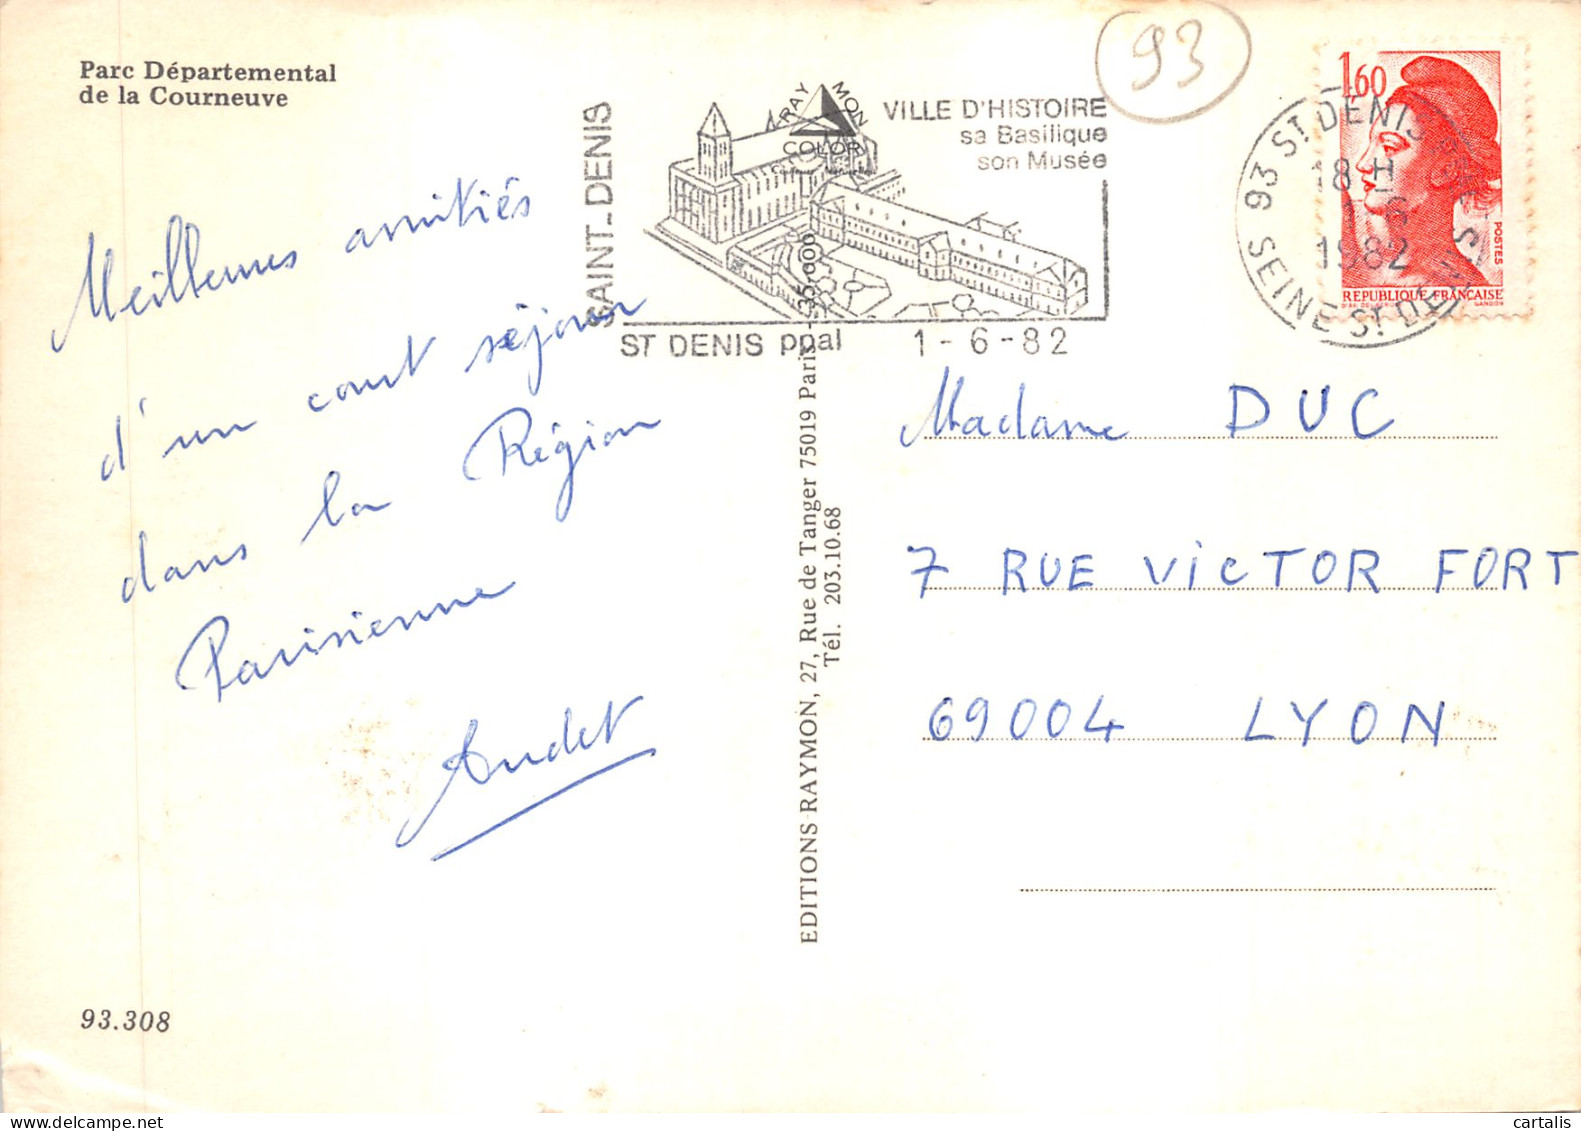 Parc Départemental
de la Courneuve
93
SAINT-DENIS
RAYMON
COLOR
VILLE D'HISTOIRE
sa Basilique
son Musée
ST DENIS ppal 1-6-82
93 ST DENIS
18 H
1-6
1982
SEINE ST DENIS
1,60
POSTES
REPUBLIQUE FRANÇAISE
GANDON
Meilleures amitiés
d'un court séjour
dans la Région
Parisienne
Audet
EDITIONS-RAYMON, 27, Rue de Tanger 75019 Paris - 36.000
Tél. 203.10.68
Madame DUC
7 RUE VICTOR FORT
69004 LYON
93.308
cartalis